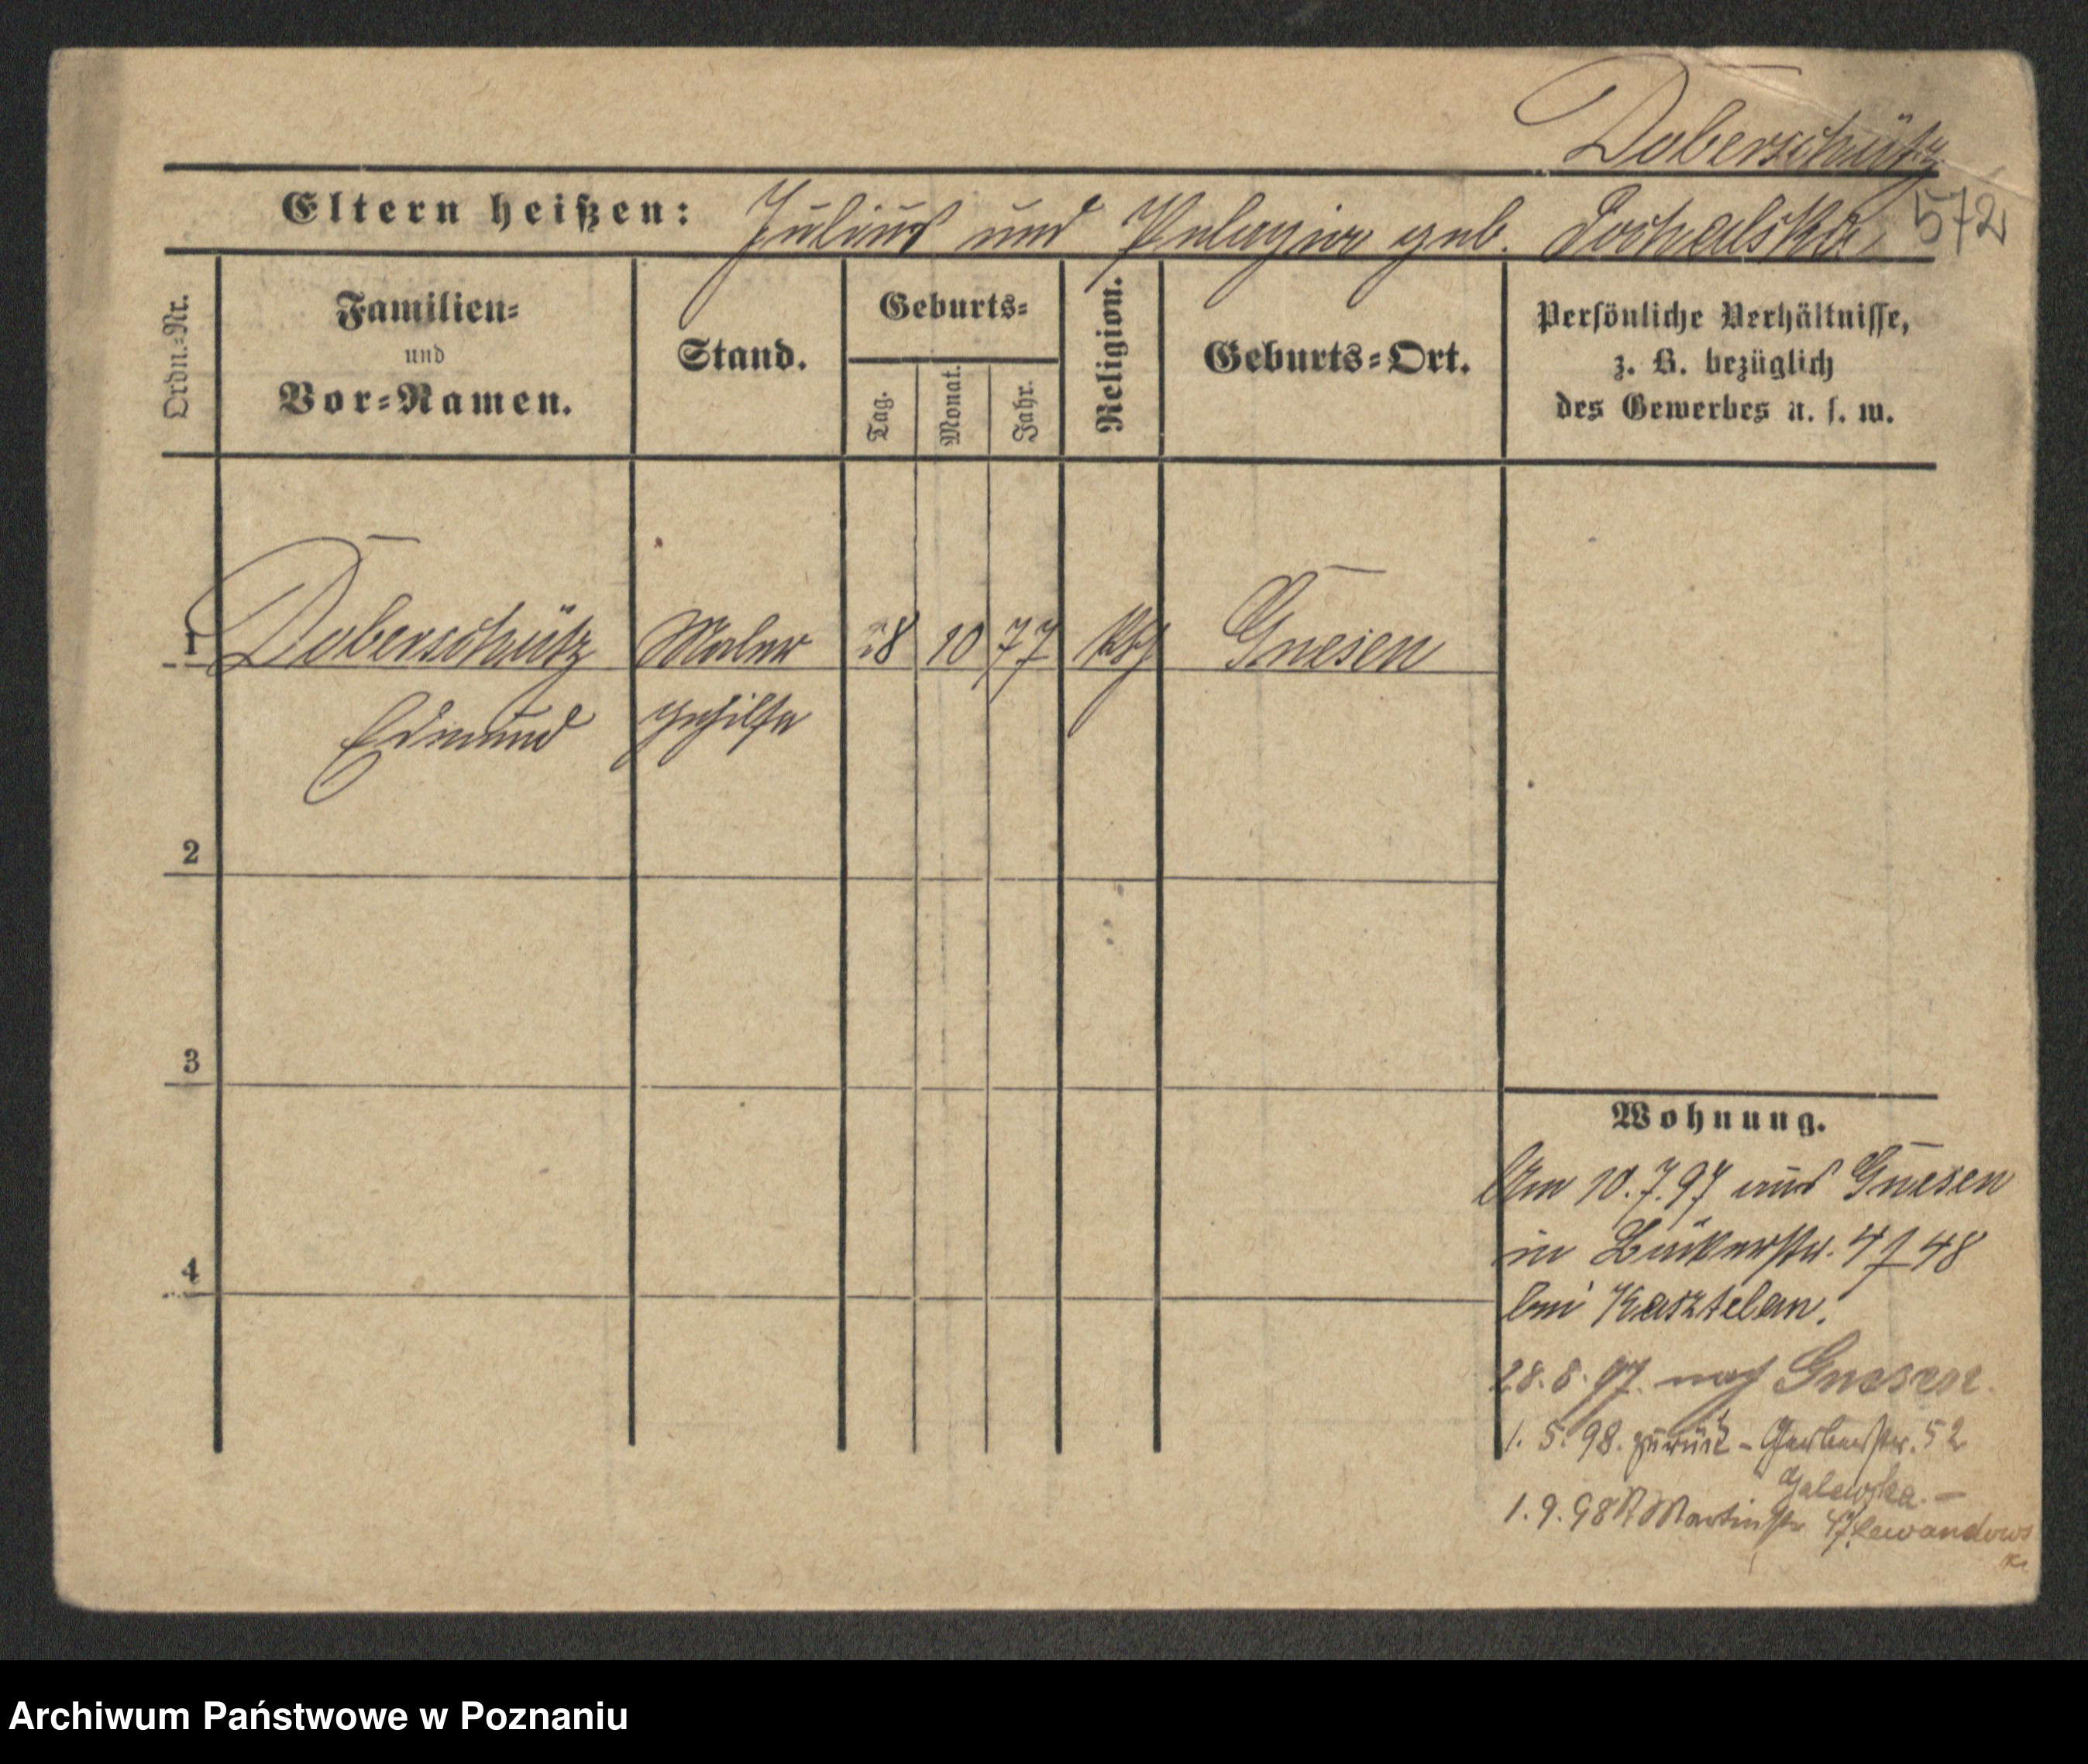 Doberschütz
572
Eltern heißen: Julius und Pelagia geb.
Ordn.-Nr.
Familien=
und
Vor=Namen.
Stand.
Geburts=
Tag.
Monat.
Jahr.
Religion.
Geburts=Ort.
Persönliche Verhältnisse,
z. B. bezüglich
des Gewerbes u. s. w.
1 Doberschütz Maler 28 10 77 Gnesen
Edmund gehilfe
2
3
4
Wohnung.
Am 10.7.97 aus Gnesen
in Bäckerstr. 48
bei Kasztelan.
28.8.97. nach Gnesen.
1.5.98. zurück - Gerberstr. 52
Galewska. -
1.9.98 Martinstr 47 Lewandows
ki
Archiwum Państwowe w Poznaniu